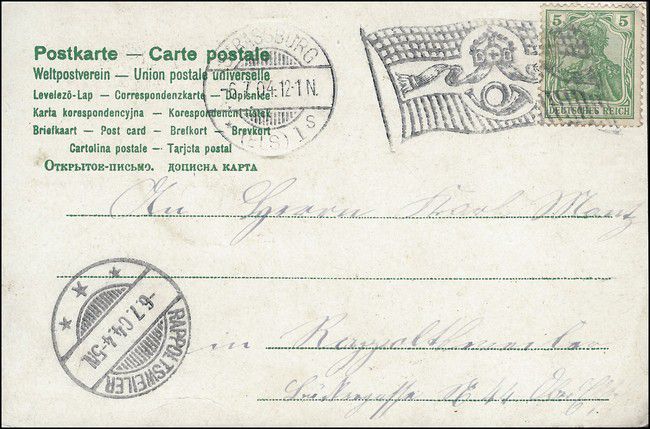 Postkarte — Carte postale
Weltpostverein — Union postale universelle
Levelező-Lap — Correspondenzkarte — Dopisnice
Karta korespondencyjna — Korespondenční lístek
Briefkaart — Post card — Brefkort — Brevkort
Cartolina postale — Tarjeta postal
Открытое-письмо. дописна карта
STRASSBURG
-6.7.04.12-1N.
(ELS) 1 s
5 5
DEUTSCHES REICH
An Herrn Karl Montz
RAPPOLTSWEILER
-6.7.04.4-5N.
in Rappoltsweiler